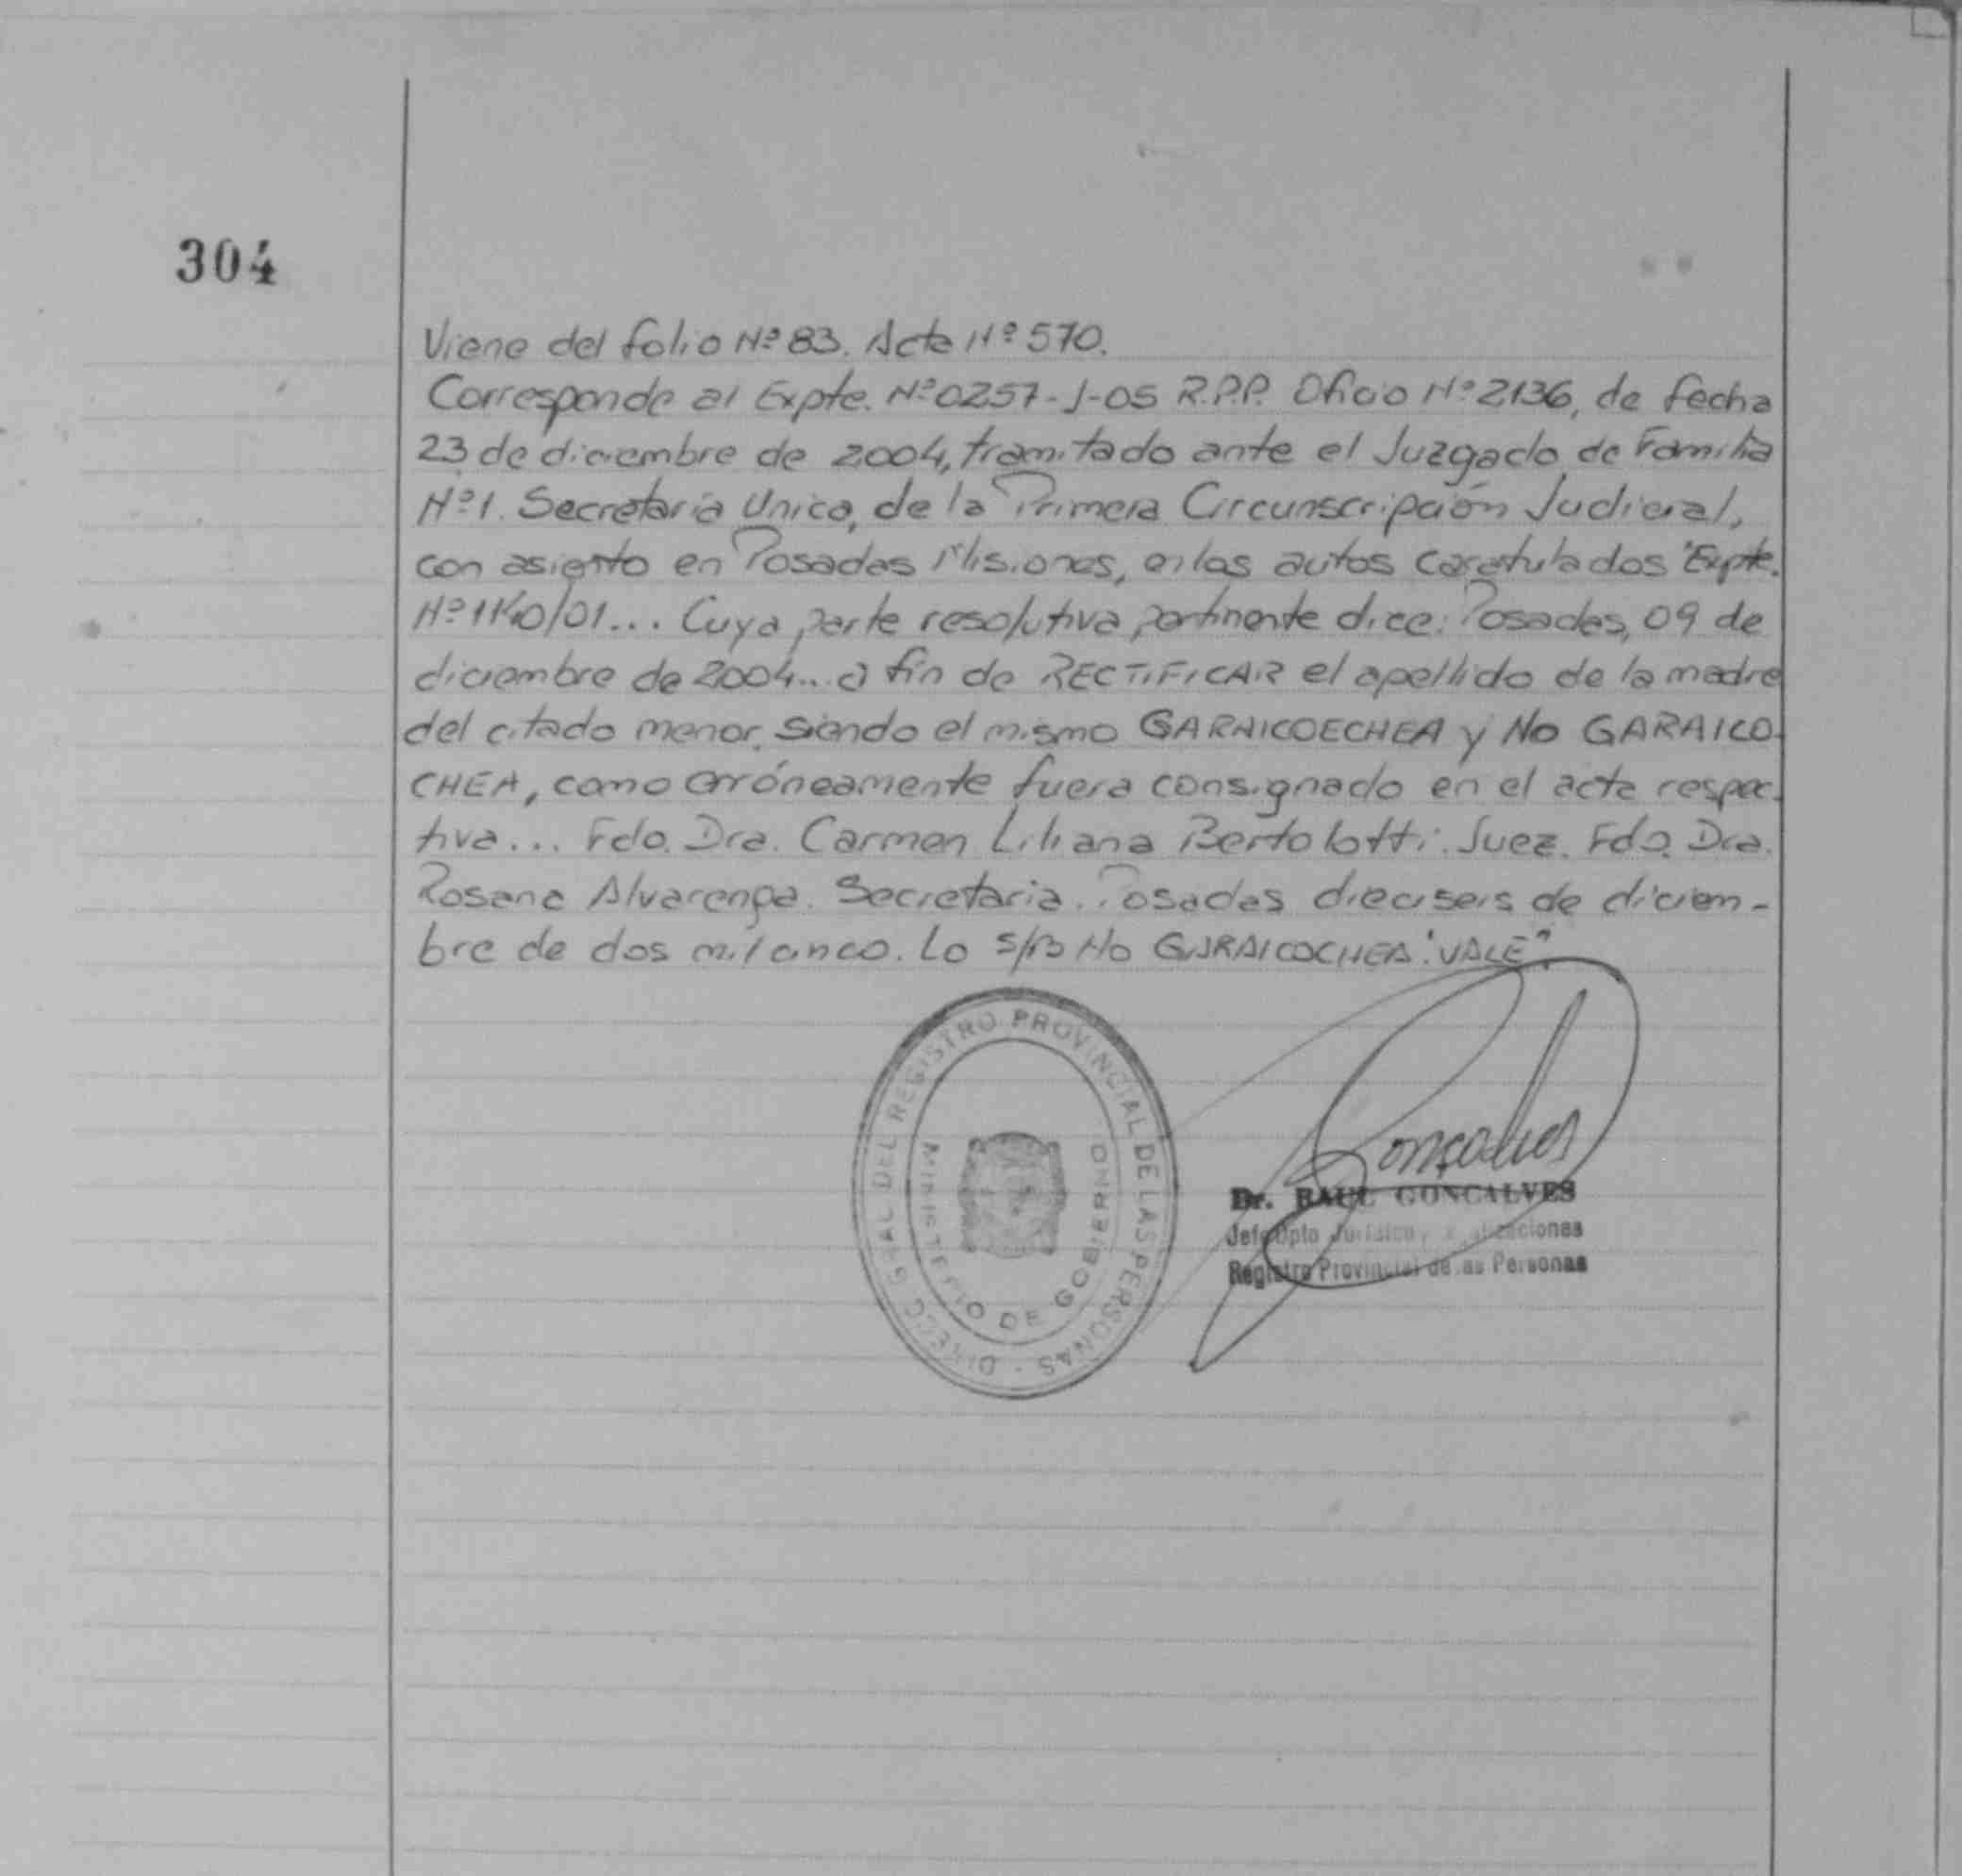 304
Viene del folio Nº 83. Acta Nº 570.
Corresponde al Expte. Nº 0257-J-05 R.P.P. Oficio Nº 2136, de fecha
23 de diciembre de 2004, tramitado ante el Juzgado de Familia
Nº 1. Secretaria Unica, de la Primera Circunscripción Judicial,
con asiento en Posadas Misiones, en los autos caratulados "Expte.
Nº ... Cuya parte resolutiva pertinente dice: Posadas, 09 de
diciembre de 2004... a fin de RECTIFICAR el apellido de la madre
del citado menor, siendo el mismo GARAICOECHEA y NO GARAICO-
CHEA, como erróneamente fuera consignado en el acta respec-
tiva... Fdo. Dra. Carmen Liliana Bertolotti. Juez. Fdo. Dra.
Rosana Alvarenga. Secretaria. Posadas dieciseis de diciem-
bre de dos mil cinco. Lo s/b No GARAICOCHEA "VALE".
DIRECC GRAL DEL REGISTRO PROVINCIAL DE LAS PERSONAS -
MINISTERIO DE GOBIERNO
Goncalves
Dr. RAUL GONCALVES
Jefe Dpto Juridico y
Registro Provincial de las Personas